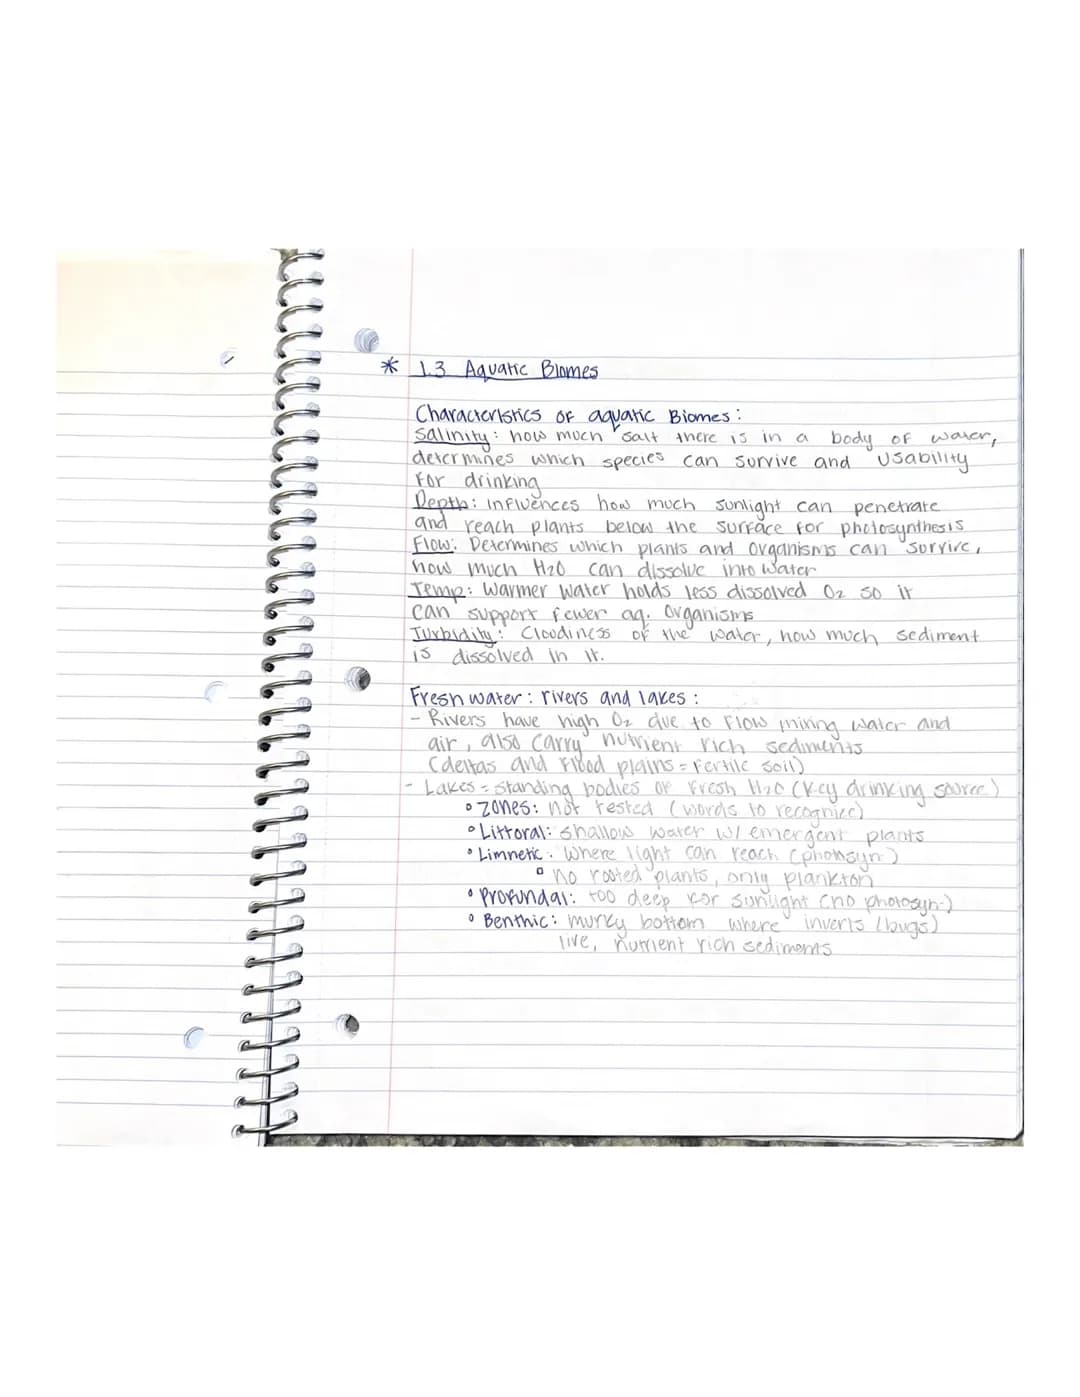 * 1.3 Aquatic Biomes
Characteristics of aquatic Biomes:
Salinity: how much salt there is in a body of water,
determines which species can survive and usability
for drinking
Depth: influences how much sunlight can penetrate
and reach plants below the surface for photosynthesis
Flow: Determines which plants and organisms can survive,
how much H2O can dissolve into water
Temp: Warmer water holds less dissolved O2 so it
can support fewer aq. organisms
Turbidity: Cloudiness of the water, how much sediment
is dissolved in it.
Fresh water: rivers and lakes:
- Rivers have high O2 due to flow mixing water and
air, also carry nutrient rich sediments
(deltas and flood plains = fertile soil)
- Lakes = standing bodies of fresh H2O (key drinking source)
• Zones: not tested (words to recognize)
• Littoral: shallow water w/ emergent plants
• Limnetic: Where light can reach (photosyn.)
▫ no rooted plants, only plankton
• Profundal: too deep for sunlight (no photosyn.)
• Benthic: murky bottom where inverts (bugs)
live, nutrient rich sediments